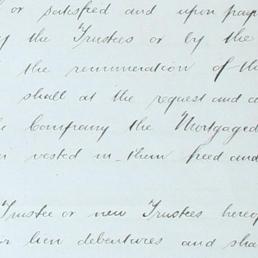 or satisfied and upon pay
by the Trustees or by the
the remuneration of the
shall at the request and co
Company the Mortgaged
vested in them freed and

Trustee or new Trustees hereof
or lien debentures and sha